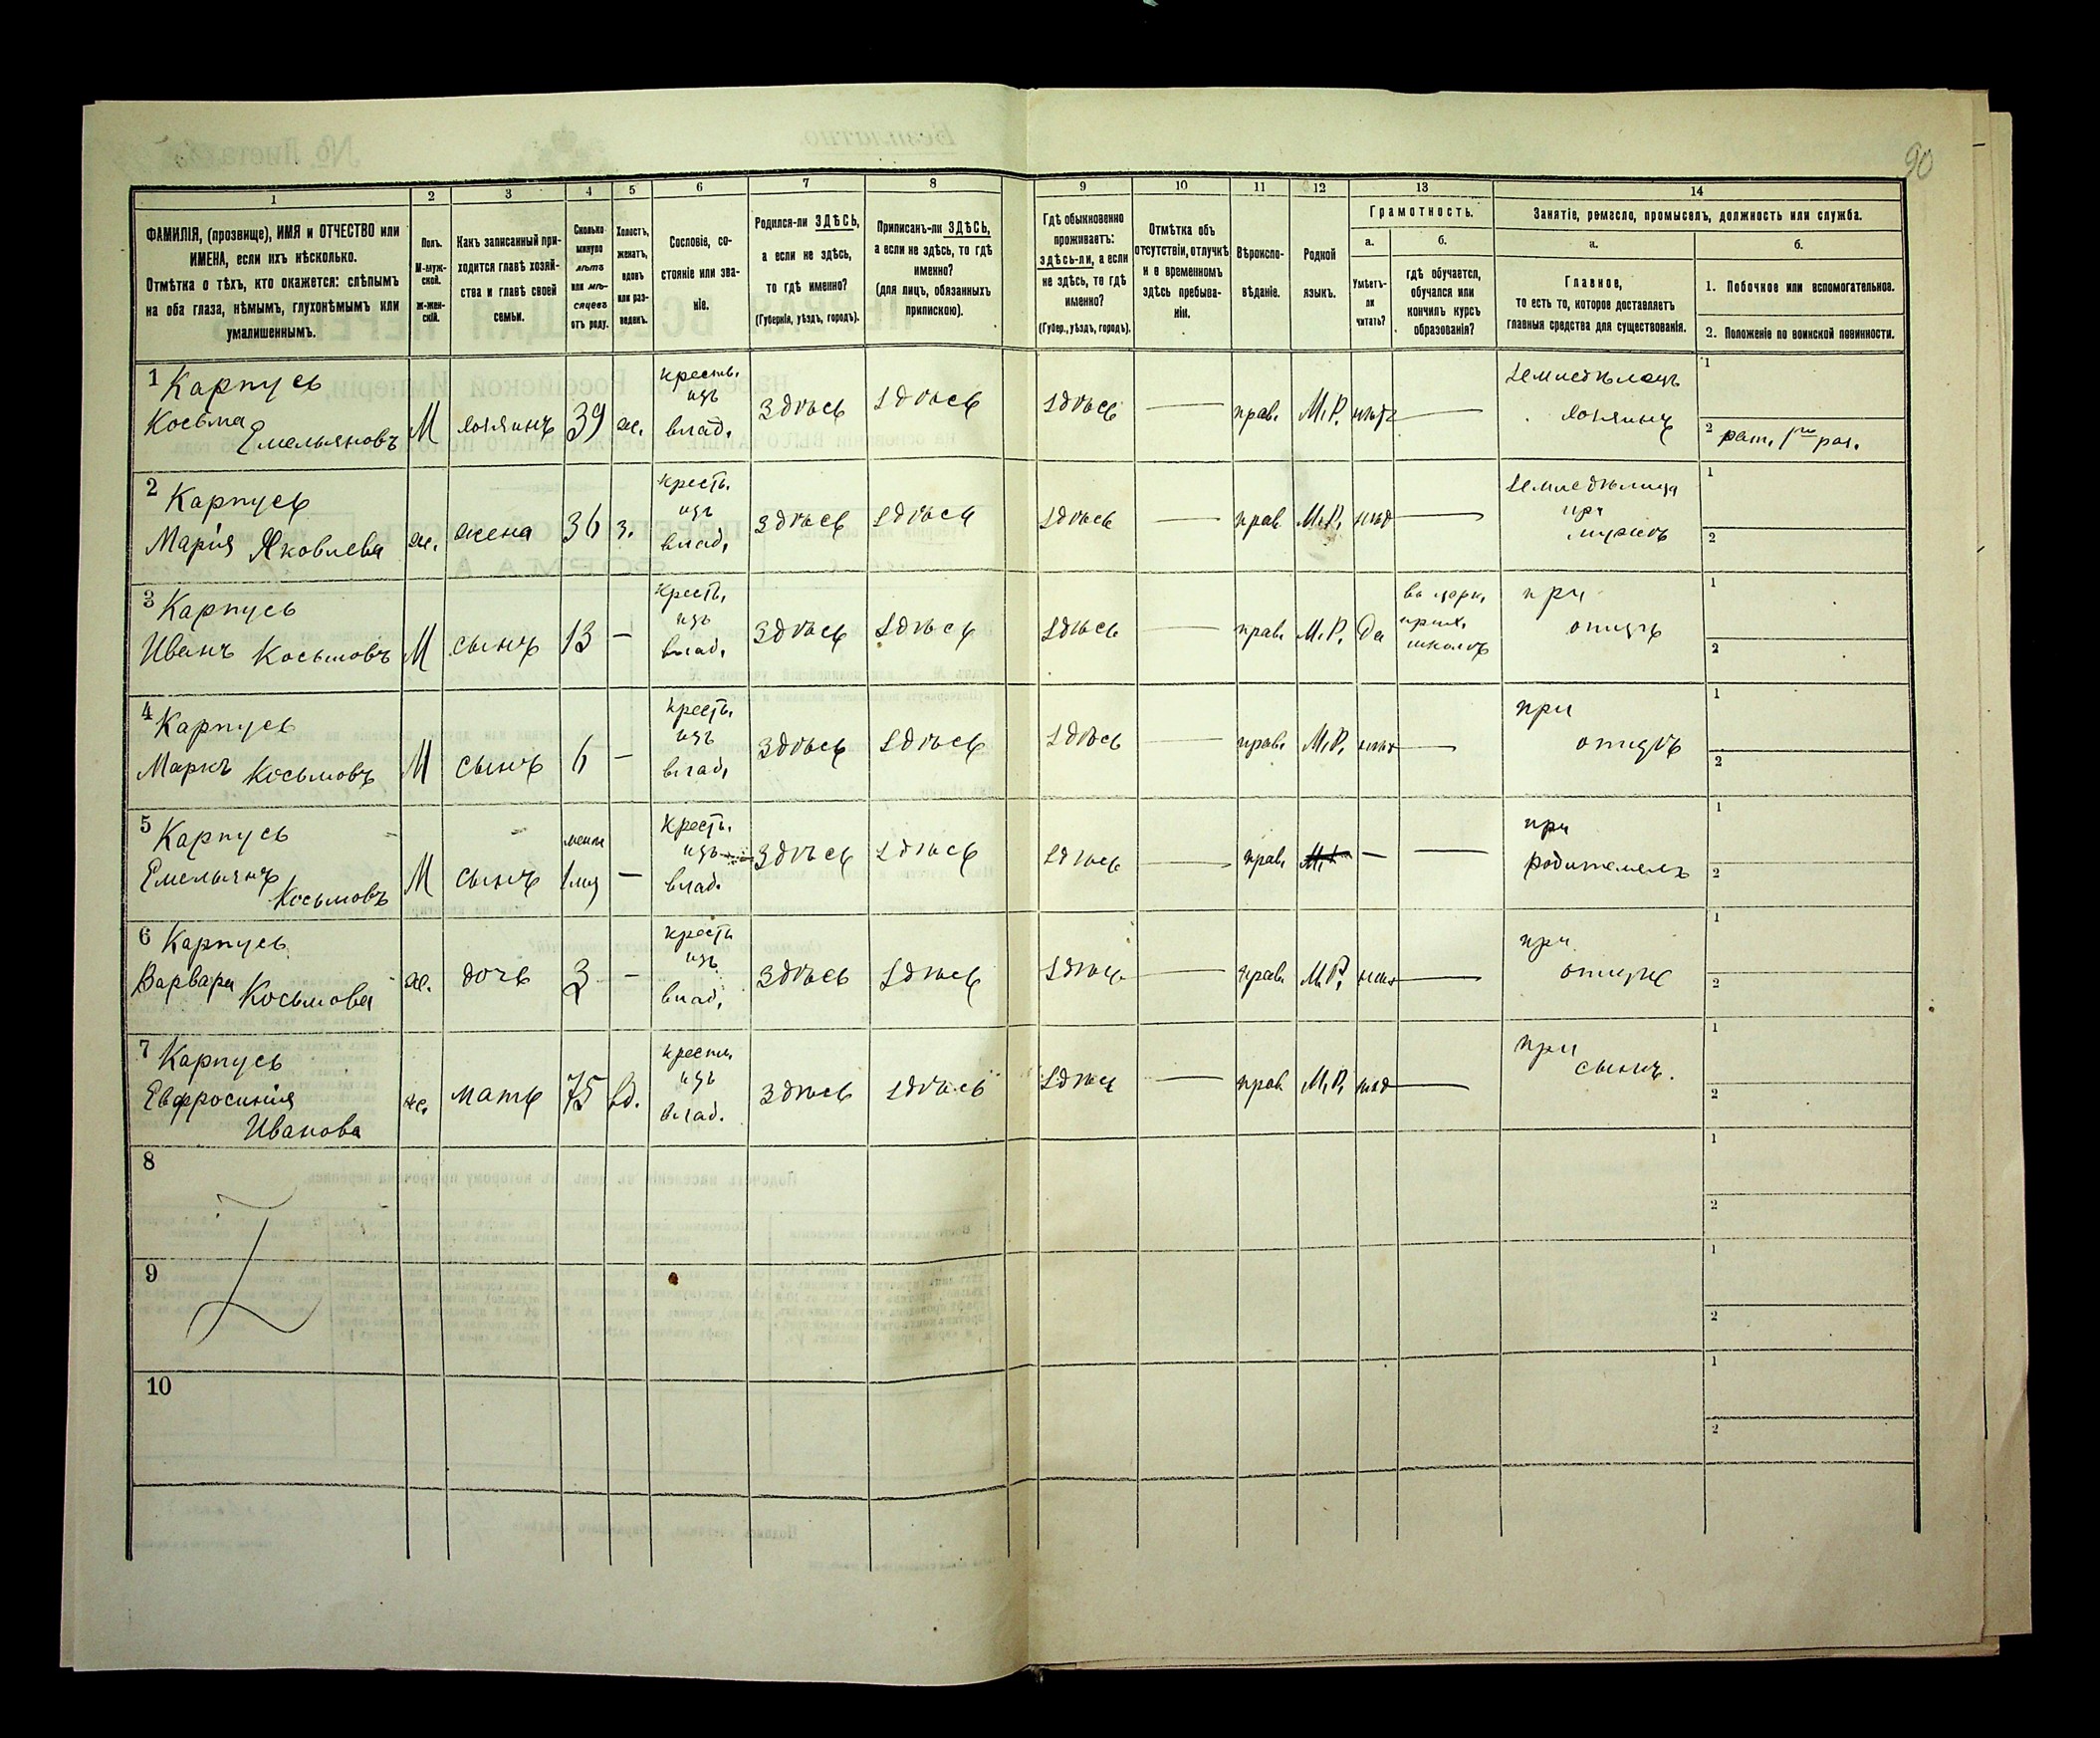 90
1
2
3
4
5
6
7
8
9
10
11
12
13
14
ФАМИЛІЯ, (прозвище), ИМЯ и ОТЧЕСТВО или
ИМЕНА, если ихъ нѣсколько.
Отмѣтка о тѣхъ, кто окажется: слѣпымъ
на оба глаза, нѣмымъ, глухонѣмымъ или
умалишеннымъ.
Полъ.
М-муж-
ской.
Ж-жен-
скій.
Какъ записанный при-
ходится главѣ хозяй-
ства и главѣ своей
семьи.
Сколько
минуло
лѣтъ
или мѣ-
сяцевъ
отъ роду.
Холостъ,
женатъ,
вдовъ
или раз-
веденъ.
Сословіе, со-
стояніе или зва-
ніе.
Родился-ли ЗДѢСЬ,
а если не здѣсь,
то гдѣ именно?
(Губернія, уѣздъ, городъ).
Приписанъ-ли ЗДѢСЬ,
а если не здѣсь, то гдѣ
именно?
(для лицъ, обязанныхъ
припискою).
Гдѣ обыкновенно
проживаетъ:
здѣсь-ли, а если
не здѣсь, то гдѣ
именно?
(Губер., уѣздъ, городъ).
Отмѣтка объ
отсутствіи, отлучкѣ
и о временномъ
здѣсь пребыва-
ніи.
Вѣроиспо-
вѣданіе.
Родной
языкъ.
Грамотность.
а.
Умѣетъ-
ли
читать?
б.
гдѣ обучается,
обучался или
кончилъ курсъ
образованія?
Занятіе, ремесло, промыселъ, должность или служба.
а.
Главное,
то есть то, которое доставляетъ
главныя средства для существованія.
б.
1. Побочное или вспомогательное.
2. Положеніе по воинской повинности.
1 Карпусь
Косьма
Емельяновъ
М
хозяинъ
39
ж.
кресть.
изъ
влад.
Здѣсь
здѣсь
здѣсь
—
прав.
М.Р.
нѣтъ
—
земледѣлецъ
хозяинъ
1
2 рат. 1го раз.
2 Карпусь
Марія Яковлева
ж.
жена
36
з.
кресть.
изъ
влад.
Здѣсь
здѣсь
здѣсь
—
прав.
М.Р.
нѣт
—
земледѣлица
при
мужѣ
1
2
3 Карпусь
Иванъ Косьмовъ
М
сынъ
13
—
кресть.
изъ
влад.
Здѣсь
здѣсь
здѣсь
—
прав.
М.Р.
да
въ церк.
прих.
школѣ
при
отцѣ
1
2
4 Карпусь
Маркъ Косьмовъ
М
сынъ
6
—
кресть.
изъ
влад.
Здѣсь
здѣсь
здѣсь
—
прав.
М.Р.
нѣт
—
при
отцѣ
1
2
5 Карпусь
Емельянъ
Косьмовъ
М
сынъ
менѣ
1 мѣ
—
Кресть.
изъ
влад.
Здѣсь
здѣсь
здѣсь
—
прав.
—
—
при
родителяхъ
1
2
6 Карпусь
Варвара Косьмова
ж.
дочь
3
—
кресть
изъ
влад.
Здѣсь
здѣсь
здѣсь
—
прав.
М.Р.
нѣт
—
при
отцѣ
1
2
7 Карпусь
Евфросинія
Иванова
ж.
мать
75
вд.
кресть
изъ
влад.
Здѣсь
здѣсь
здѣсь
—
прав.
М.Р.
нѣт
—
при
сынѣ.
1
2
8
1
2
9
1
2
10
1
2